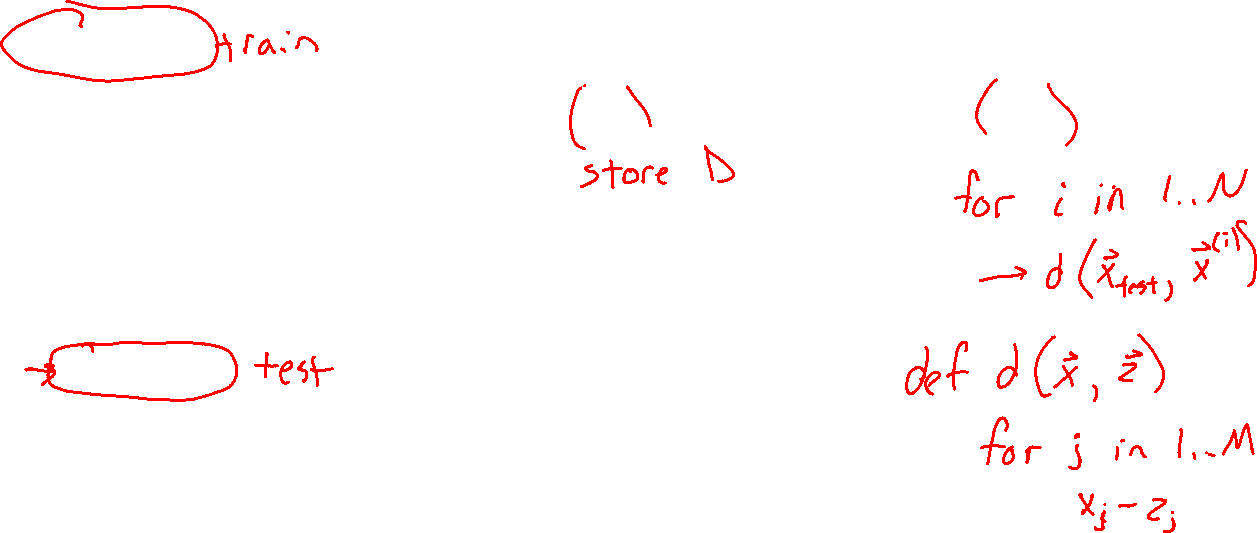 train
( )
store D
( )
for i in 1..N
→ d(x⃗_test, x⃗^(i))
test
def d(x⃗, z⃗)
for j in 1..M
x_j - z_j